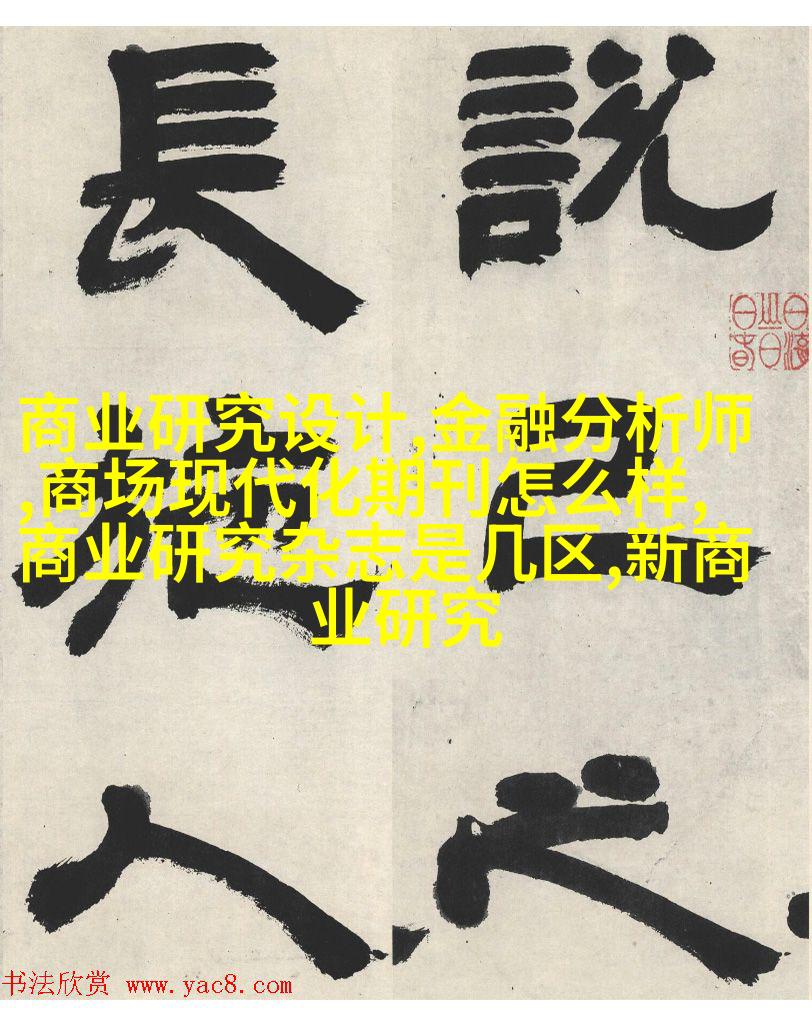 說己之
長施人
商业研究设计,金融分析师
,商场现代化期刊怎么样,
商业研究杂志是几区,新商
业研究
书法欣赏 www.yac8.com